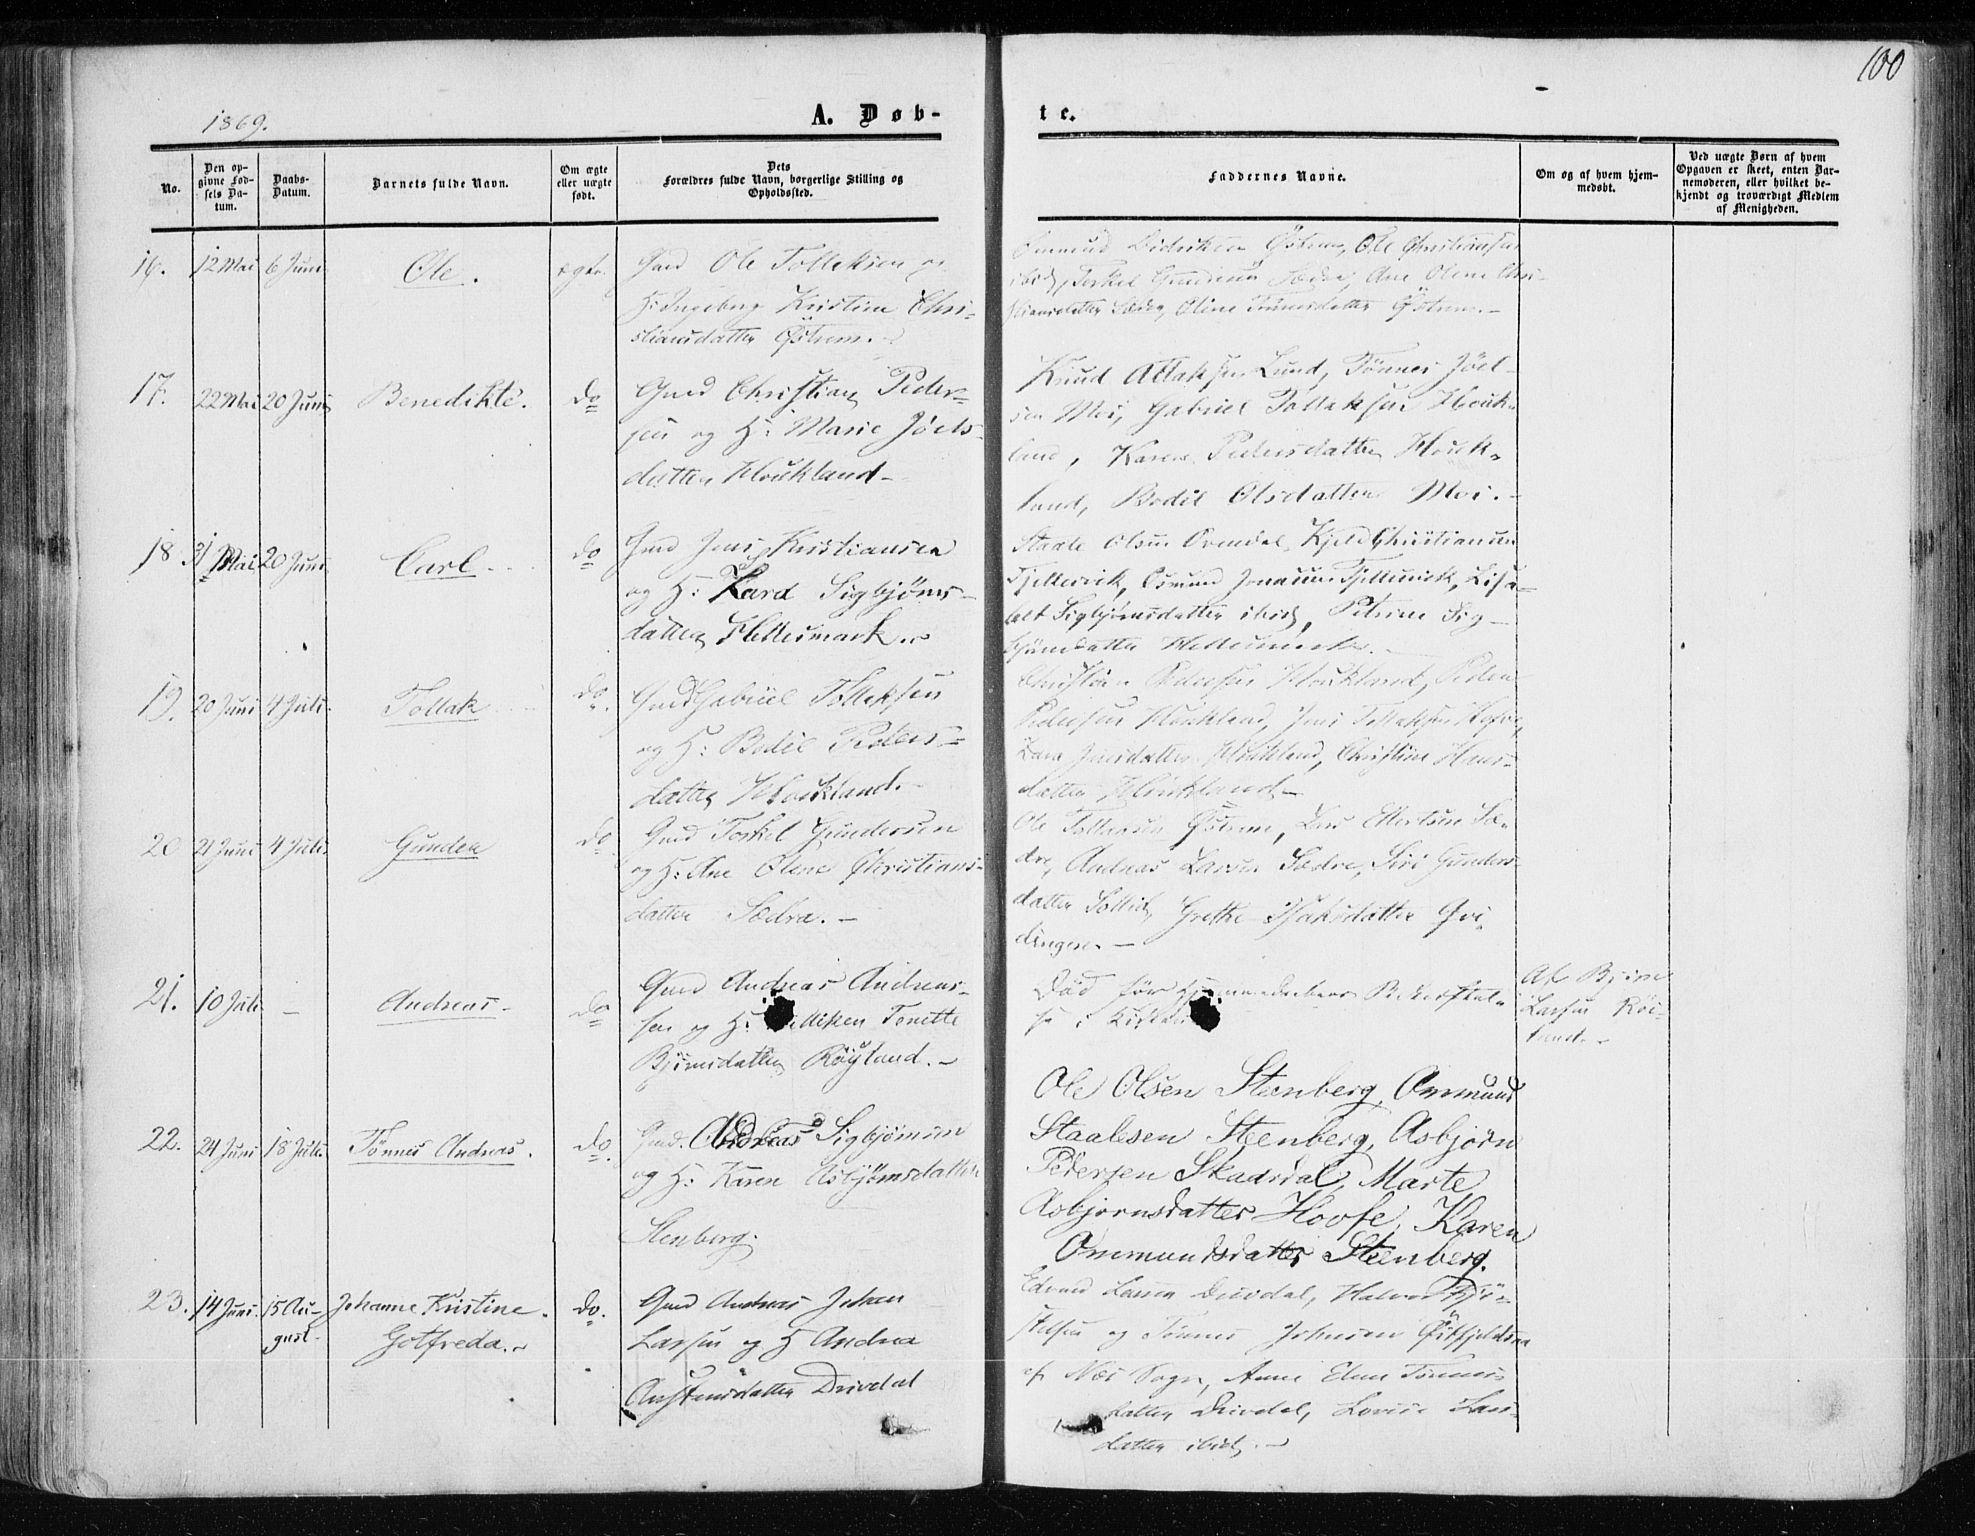 100
1869.
A. Døb-
te.
No.
Den op-
givne Fød-
sels Da-
tum.
Daabs-
Datum.
Barnets fulde Navn.
Om ægte
eller uægte
født.
Dets
Forældres fulde Navn, borgerlige Stilling og
Opholdssted.
Faddernes Navne.
Om og af hvem hjem-
medøbt.
Ved uægte Børn af hvem
Opgaven er skeet, enten Bar-
nemoderen, eller hvilket be-
kjendt og troværdigt Medlem
af Menigheden.
16. 12 Mai 6 Juni Ole. ægte.
Gmd Ole Tollaksen og
H: Ingeborg Kristine Chri-
stiansdatter Østrem.
Østrem, Ole Christiansen
ibid, Torkel Gundersen Sædre, Ane Olene Chri-
stiansdatter Sædre, Oline Tønnesdatter Østrem.
17. 22 Mai 20 Juni Benedikte. do
Gmd Christian Peder-
sen og H: Marie Jöels-
datter Houkland
Knud Atlaksen Lund, Tönnes Jöel-
sen Moi, Gabriel Tollaksen Houk-
land, Karen Pedersdatter Houk-
land, Bodil Olsdatter Moi.
18. 31 Mai 20 Juni Carl do
Gmd Jens Kristiansen
og H: Kard Sigbjørns-
datter Hettesmark.
Staale Olsen Kjeld Christiansen
Fjellesvik, Osmund Jonassen Fjellesvik, Lisa-
bet Sigbjørnsdatter ibid, Petrine Sig-
bjørnsdatter
19. 20 Juni 4 Juli. Tollak do.
Gmd Gabriel Tollaksen
og H: Bodil Peders-
datter Houkland.
Christian Pedersen Houkland, Peder
Pedersen Houkland, Jens Tollaksen
Jensdatter Houkland, Christine Hans-
datter Houkland
20 21 Juni 4 Juli. Gunder do
Gmd Torkel Gundersen
og H: Ane Olene Christians-
datter Sædre.
Ole Tollaksen Østrem, Lars Ellertsen Sæ-
dre, Andreas Larsen Sædre, Siri Gunders-
datter Sollid, Grethe Isaksdatter Qvi-
dingere.
21. 10 Juli Andreas do
Gmd Andreas Andreas-
sen og H: Tonette
Bjørnsdatter Røyland.
Död för
i Kirken
Af Bjørn
Larsen Röi-
land.
22. 24 Juni 18 Juli. Tønnes Andreas. do.
Gmd. Andreas Sigbjørnsen
og H: Karen Asbjørnsdatter
Stenberg.
Ole Olsen Steenberg, Ommund
Staalesen Steenberg, Asbjørn
Pedersen Skaardal, Marte
Asbjornsdatter Hovfe, Karen
Ommundsdatter Steenberg.
23. 14 Juni. 15 Au-
gust. Johanne Kristine
Gotfreda. do.
Gmd Andreas Johan
Larsen og H Andrea
Austensdatter Drivdal
Edvard Larsen Drivdal, Halvor
og Tønnes Johnsen
af Næs Sogn, Anne Elene Tønnes-
datter Drivdal, Lovise Lars-
datter ibid.